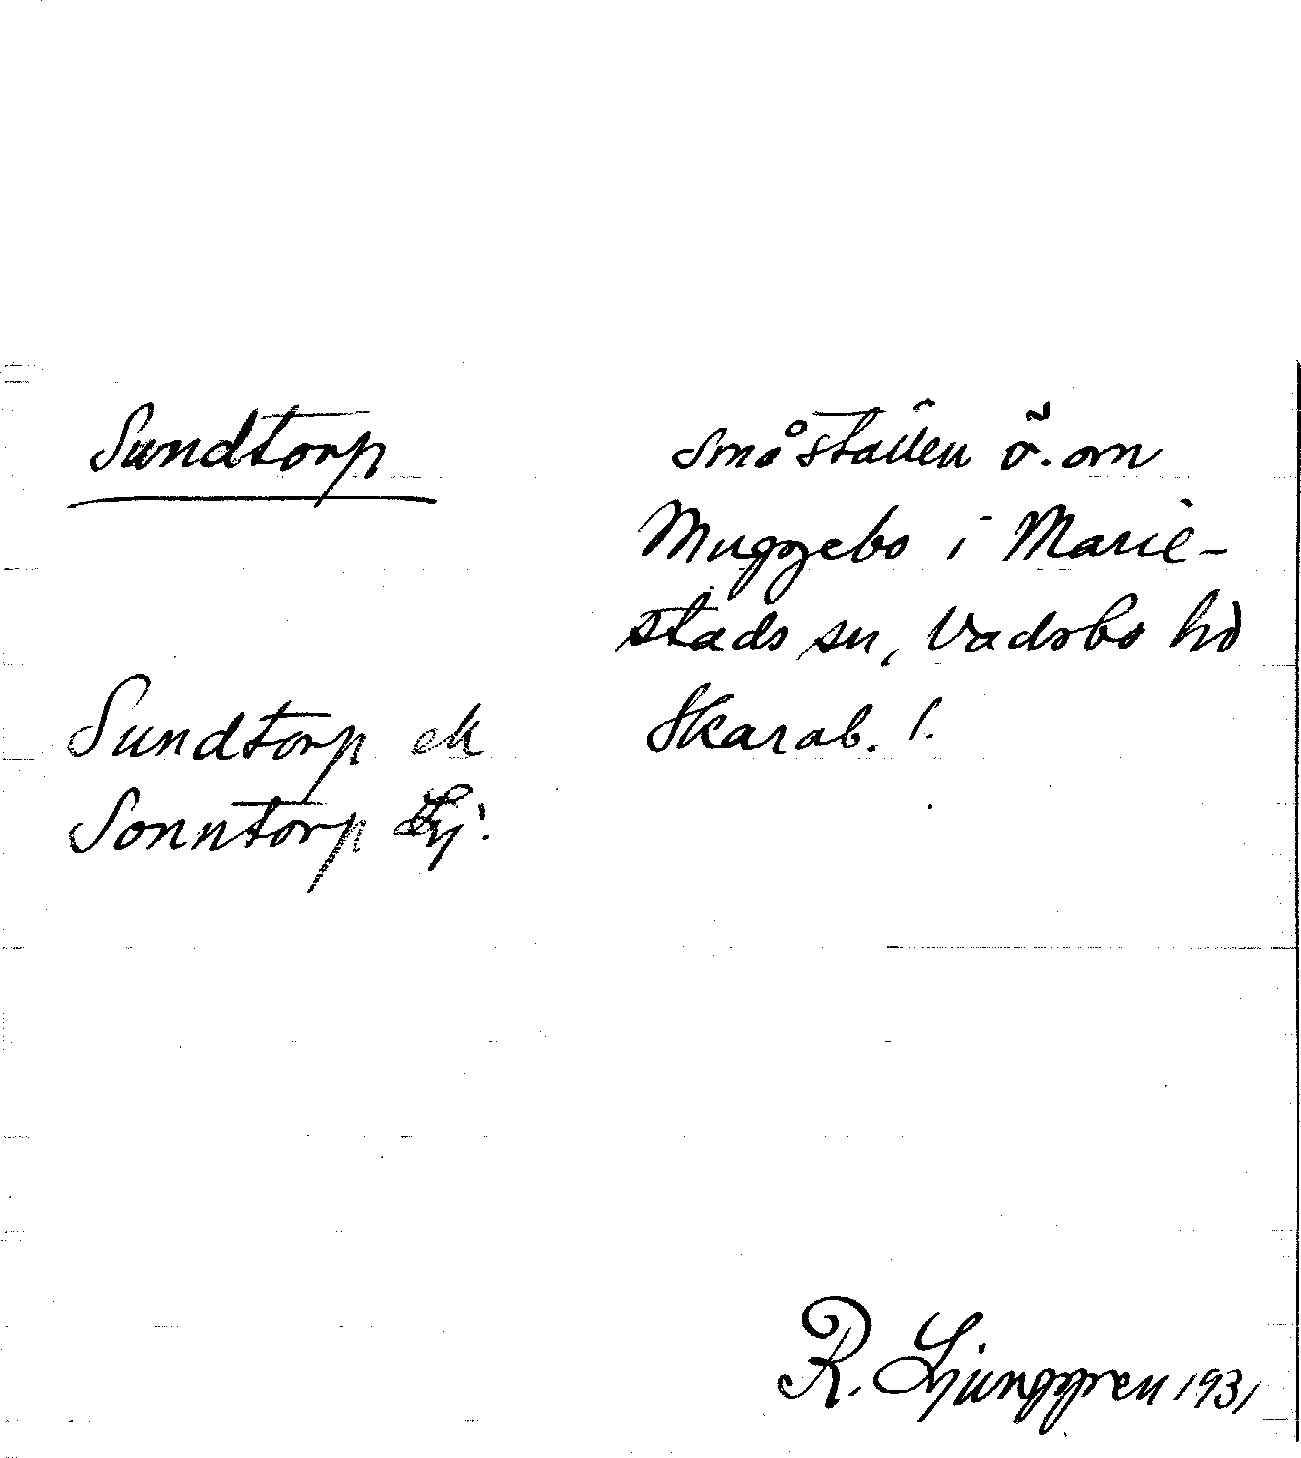 Sundtorp
småställen ö. om
Muggebo i Marie-
stads sn, Vadsbo hd
Skarab. l.
Sundtorp ek
Sonntorp Lj.
R. Ljunggren 1931